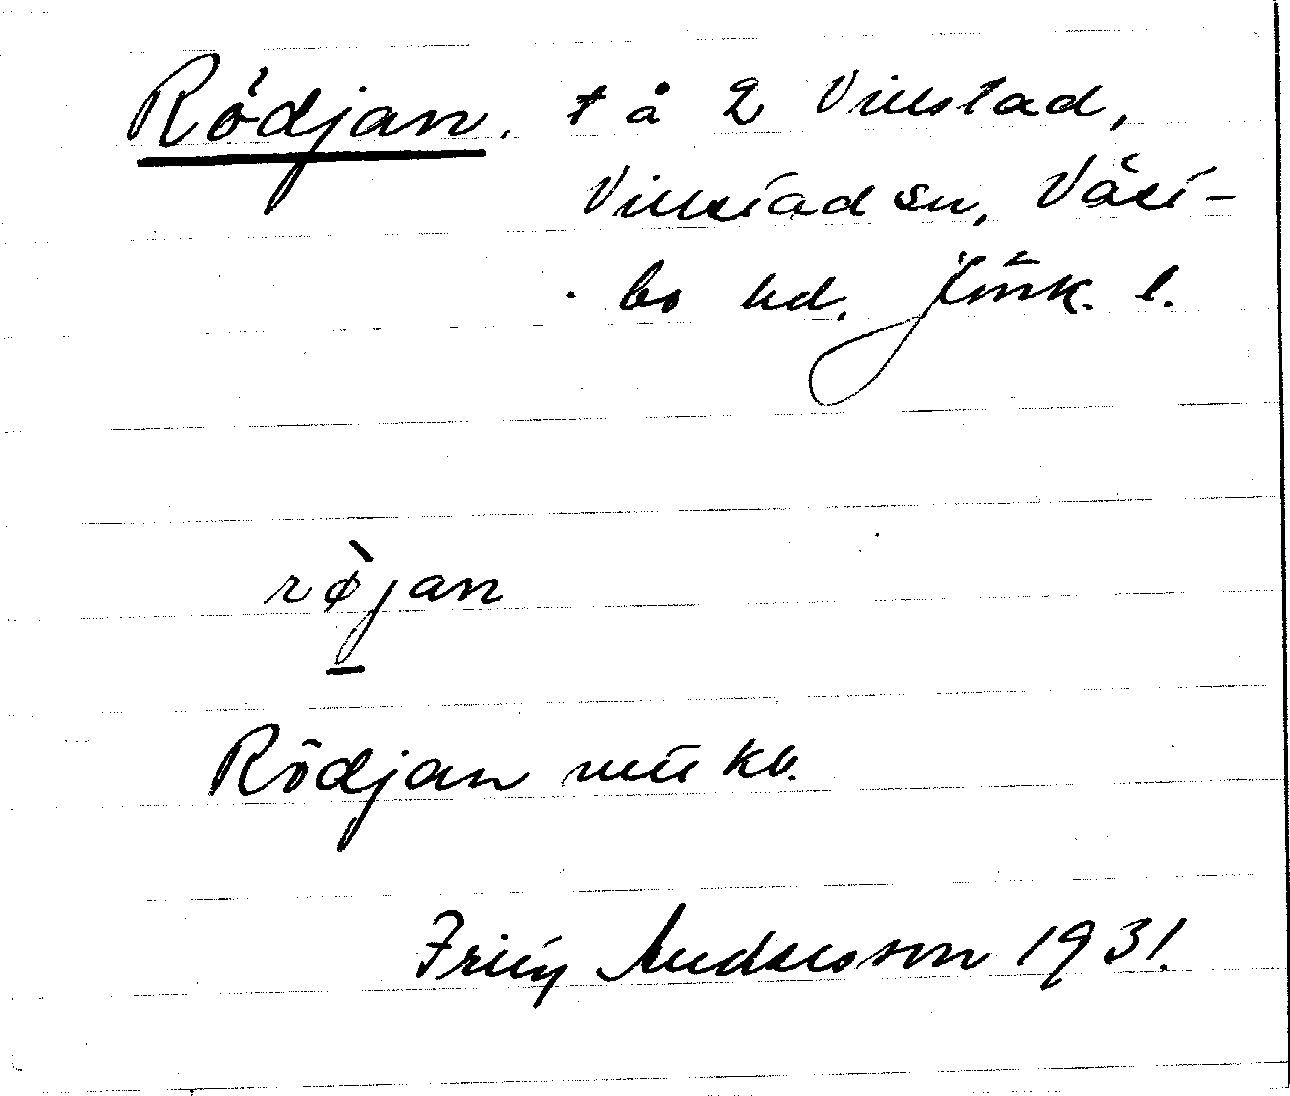 Rödjan. t å 2 Villstad,
Villstad sn, Väst-
bo hd. Jönk. l.
rø̀jan
Rödjan mtlkb.
Fritz Andersson 1931.